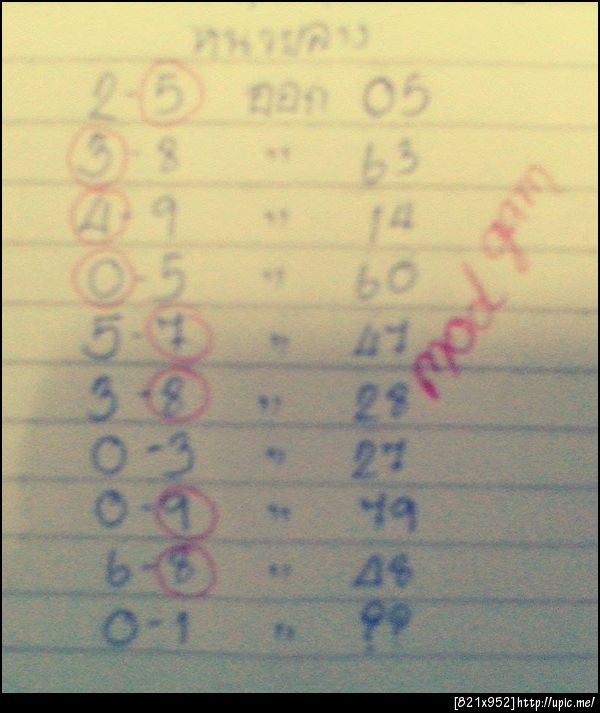 หน่วยล่าง
2-5 ออก 05
3-8 " 63
4-9 " 14
0-5 " 60
5-7 " 47
3-8 " 28
0-3 " 27
0-9 " 79
6-8 " 48
0-1 " ??
mod gam
[821x952]http://upic.me/